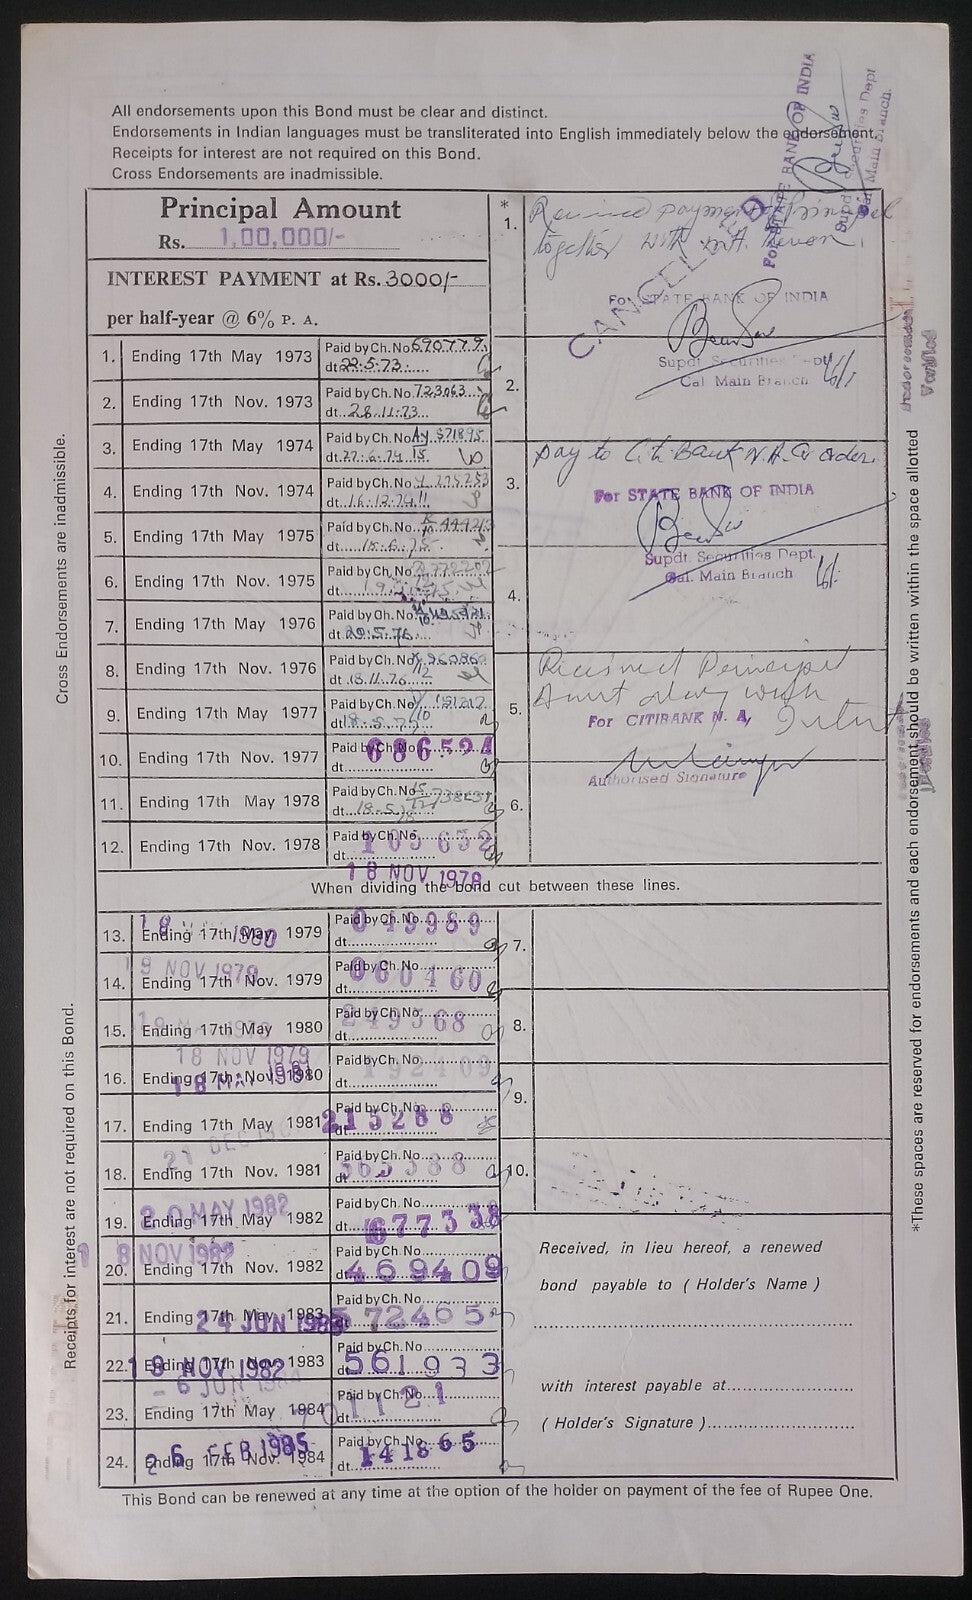 All endorsements upon this Bond must be clear and distinct.
Endorsements in Indian languages must be transliterated into English immediately below the endorsement.
Receipts for interest are not required on this Bond.
Cross Endorsements are inadmissible.
For STATE BANK OF INDIA
Supdt. Securities Dept
Cal. Main Branch.
Principal Amount
Rs. 1,00,000/-
INTEREST PAYMENT at Rs. 3000/-
per half-year @ 6% P. A.
1. Ending 17th May 1973 Paid by Ch. No. 690779
dt. 22.5.73
2. Ending 17th Nov. 1973 Paid by Ch. No. 723063
dt. 28.11.73
3. Ending 17th May 1974 Paid by Ch. No. 571895
dt. 27.6.74
4. Ending 17th Nov. 1974 Paid by Ch. No.
dt. 16.12.74
5. Ending 17th May 1975 Paid by Ch. No.
dt.
6. Ending 17th Nov. 1975 Paid by Ch. No.
dt.
7. Ending 17th May 1976 Paid by Ch. No.
dt. 20.5.76
8. Ending 17th Nov. 1976 Paid by Ch. No.
dt. 18.11.76
9. Ending 17th May 1977 Paid by Ch. No. 151217
dt. 18.5.
10. Ending 17th Nov. 1977 Paid by Ch. No. 686524
dt.
11. Ending 17th May 1978 Paid by Ch. No.
dt. 18.5.
12. Ending 17th Nov. 1978 Paid by Ch. No. 105632
dt.
18 NOV 1978
When dividing the bond cut between these lines.
13. Ending 17th May 1979 Paid by Ch. No. 049989
dt.
1980
14. Ending 17th Nov. 1979 Paid by Ch. No. 060460
dt.
19 NOV 1979
15. Ending 17th May 1980 Paid by Ch. No. 249568
dt.
18 NOV 1979
16. Ending 17th Nov. 1980 Paid by Ch. No. 192409
dt.
18 MAY 1981
17. Ending 17th May 1981 Paid by Ch. No. 215288
dt.
21 DEC
18. Ending 17th Nov. 1981 Paid by Ch. No.
dt.
20 MAY 1982
19. Ending 17th May 1982 Paid by Ch. No.
dt. 677338
18 NOV 1982
20. Ending 17th Nov. 1982 Paid by Ch. No.
dt. 469409
21. Ending 17th May 1983 Paid by Ch. No. 572465
dt.
24 JUN 1983
22. Ending 17th Nov. 1983 Paid by Ch. No.
dt. 561933
18 NOV 1982
- 6 JUN 1984
23. Ending 17th May 1984 Paid by Ch. No. 701121
dt.
26 FEB 1985
24. Ending 17th Nov. 1984 Paid by Ch. No. 141865
dt.
*
1. Received payment of Principal
together with int. thereon.
CANCELLED
For STATE BANK OF INDIA
Supdt. Securities Dept
Cal. Main Branch
2.
3. Pay to Citi Bank N.A. or order.
For STATE BANK OF INDIA
Supdt. Securities Dept.
Cal. Main Branch
4.
5. Received Principal
Amnt along with
Interest
For CITIBANK N. A,
Authorised Signature
6.
7.
8.
9.
10.
Received, in lieu hereof, a renewed
bond payable to ( Holder's Name )
with interest payable at
( Holder's Signature )
This Bond can be renewed at any time at the option of the holder on payment of the fee of Rupee One.
Cross Endorsements are inadmissible.
Receipts for interest are not required on this Bond.
*These spaces are reserved for endorsements and each endorsement should be written within the space allotted
Endorsement
Verified